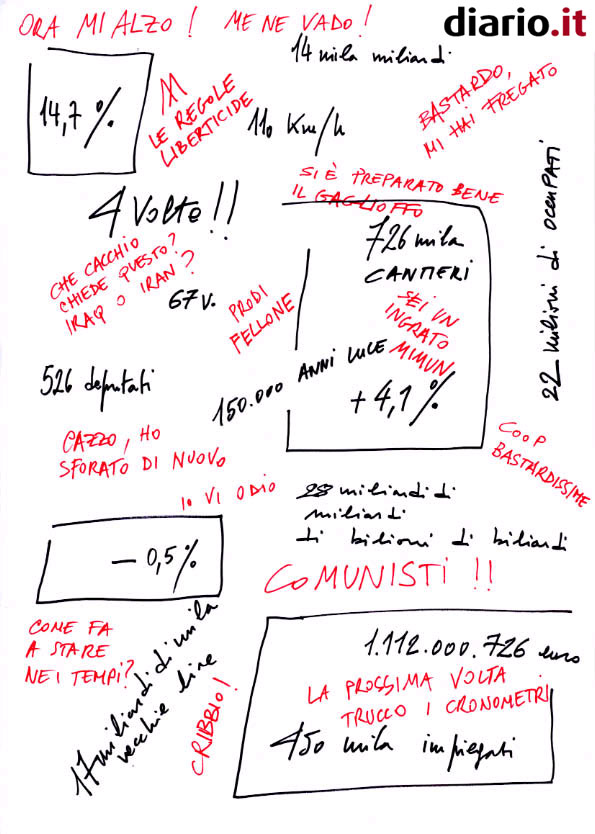 ORA MI ALZO! ME NE VADO!
diario.it
14 mila miliardi
14,7 %
LE REGOLE
LIBERTICIDE
110 Km/h
BASTARDO,
MI HAI FREGATO
SI È PREPARATO BENE
IL GAGLIOFFO
4 Volte!!
726 mila
CANTIERI
22 milioni di occupati
CHE CACCHIO
CHIEDE QUESTO?
IRAQ O IRAN?
67 v.
PRODI
FELLONE
SEI UN
INGRATO
MIMUN
526 deputati
150.000 ANNI LUCE
+ 4,1 %
CAZZO, HO
SFORATO DI NUOVO
COOP
BASTARDISSIME
IO VI ODIO
28 miliardi di
miliardi
di bilioni di biliardi
– 0,5 %
COMUNISTI!!
COME FA
A STARE
NEI TEMPI?
17 miliardi di mila
vecchie lire
CRIBBIO!
1.112.000.726 euro
LA PROSSIMA VOLTA
TRUCCO I CRONOMETRI
450 mila impiegati